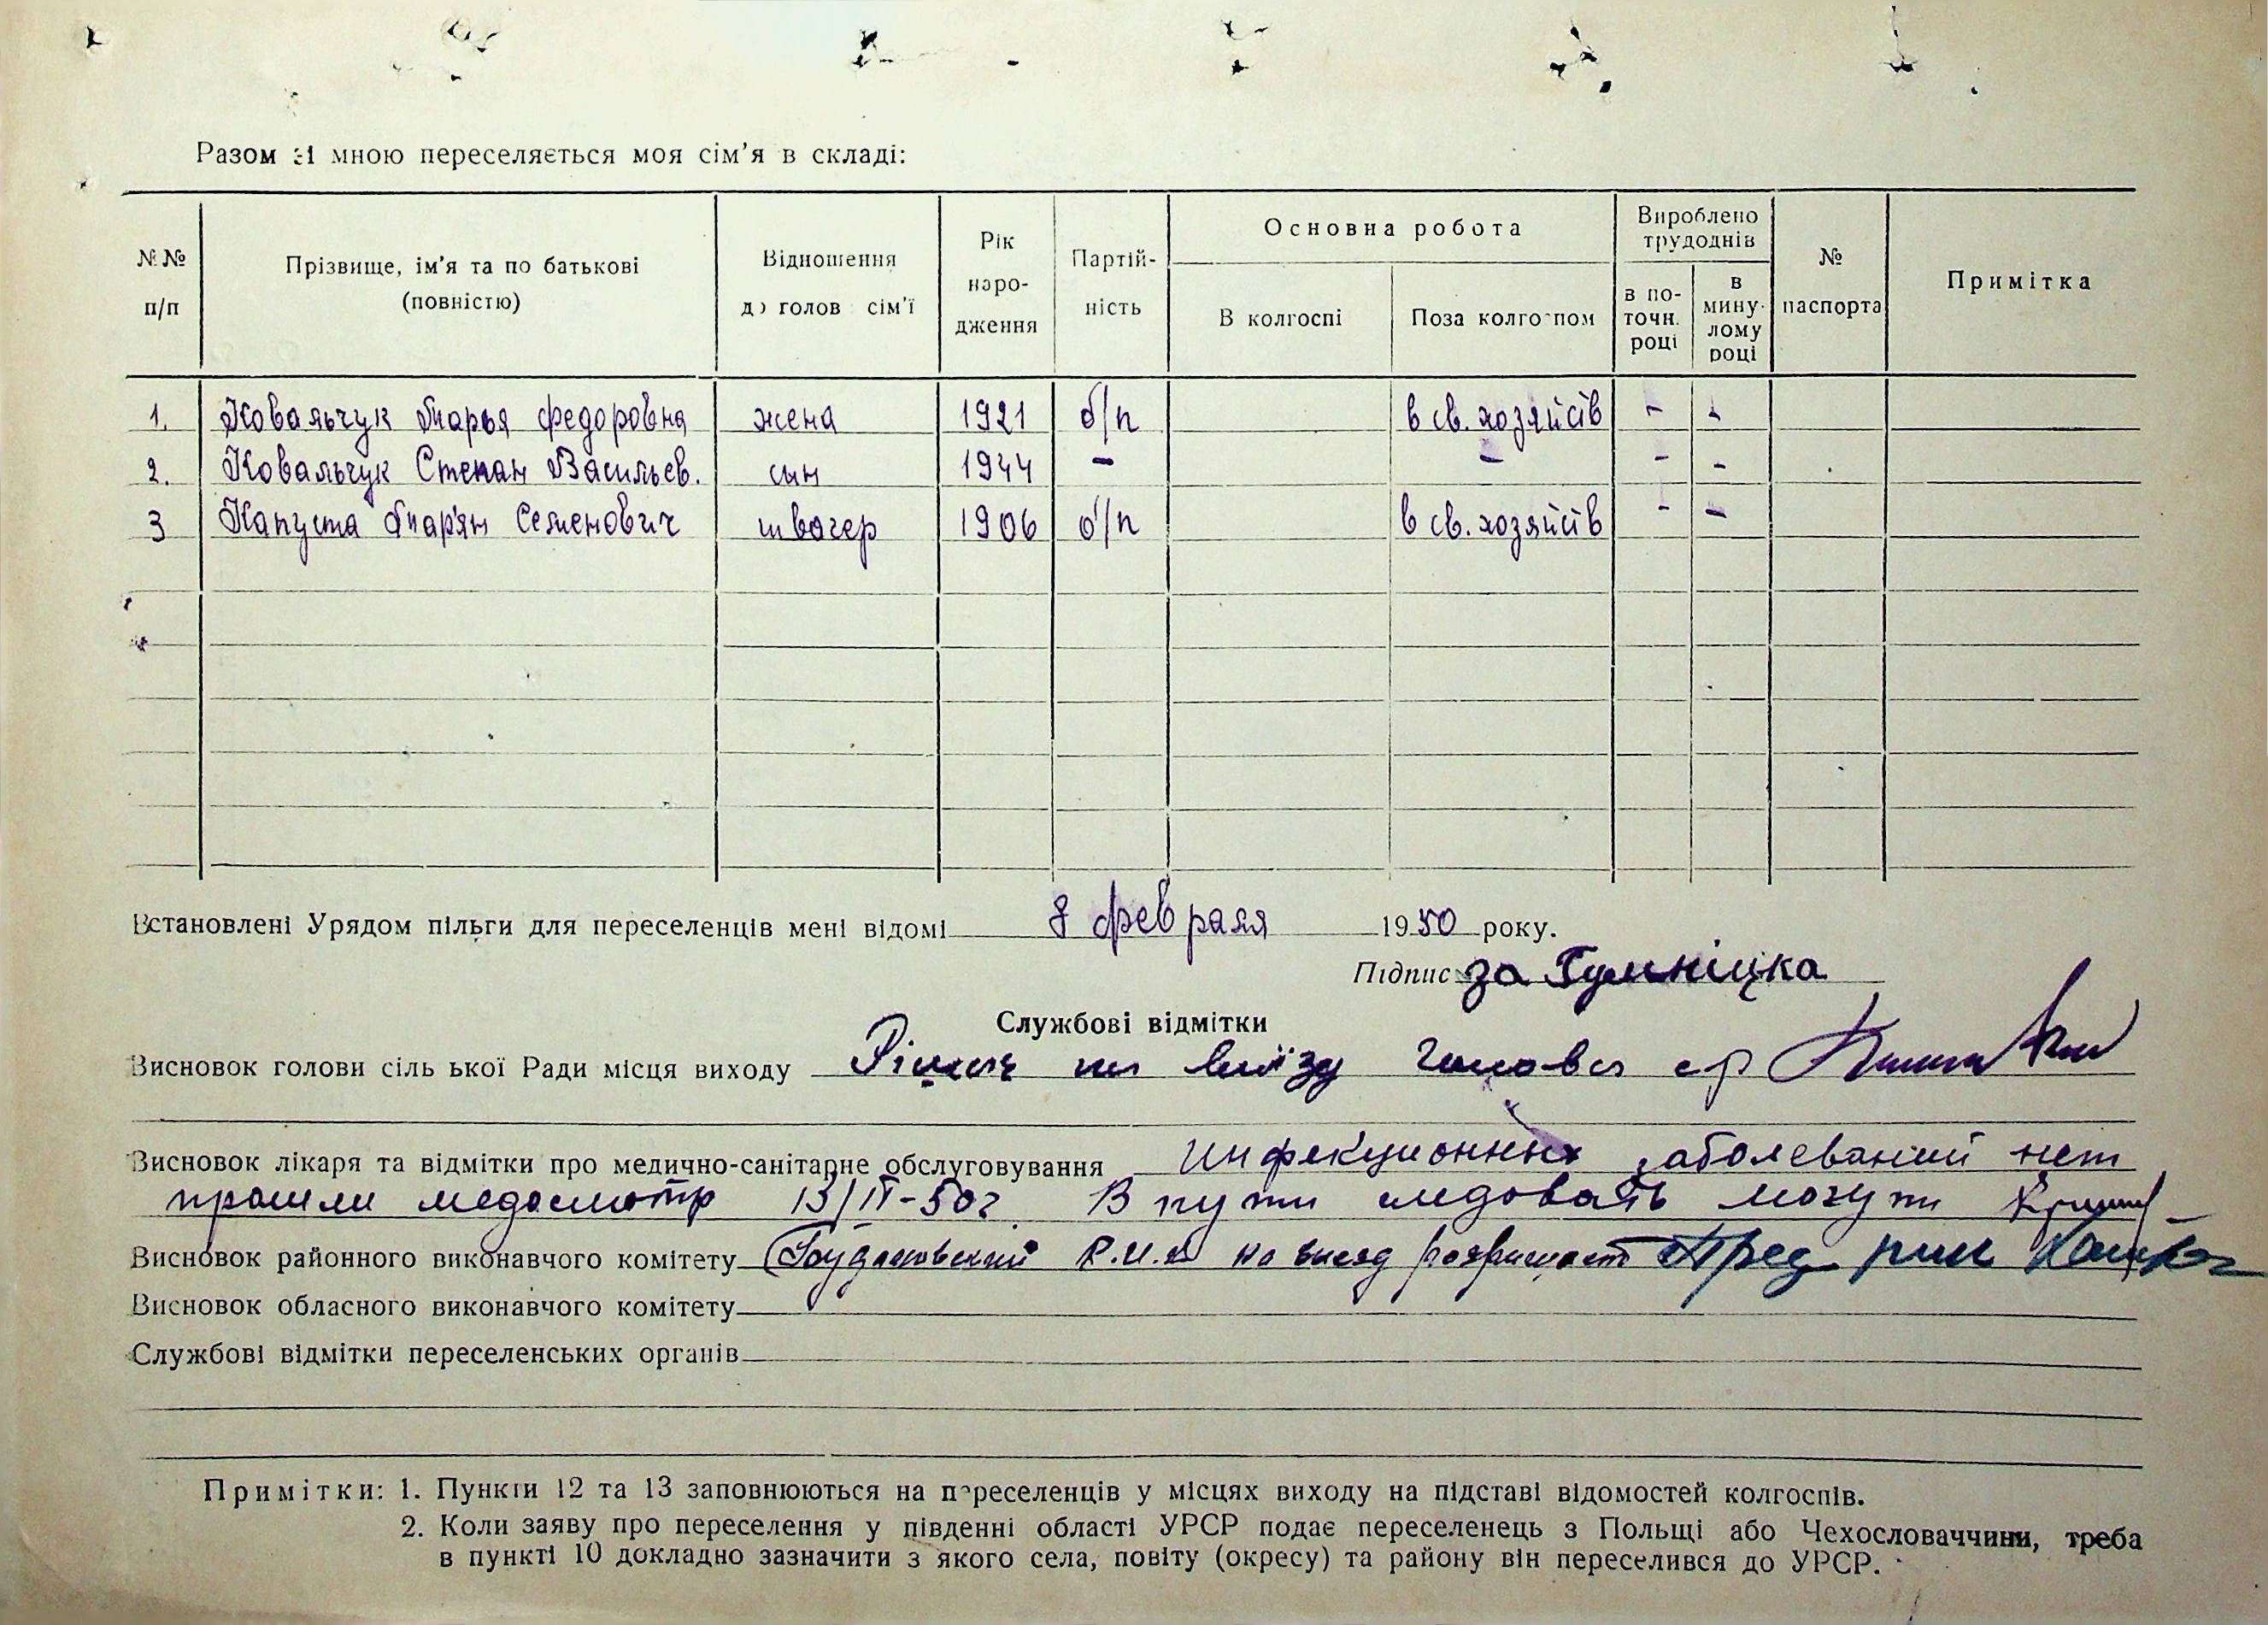 Разом зі мною переселяється моя сім'я в складі:
№№ п/п | Прізвище, ім'я та по батькові (повністю) | Відношення до голов сім'ї | Рік народження | Партійність | Основна робота | Вироблено трудоднів | № паспорта | Примітка
В колгоспі | Поза колгоспом | в поточн. році | в минулому році
1. Ковальчук Марья Федоровна жена 1921 б/п в св. хозяйств - -
2. Ковальчук Степан Васильев. сын 1944 - - - -
3 Капуста Мар'ян Семенович швагер 1906 б/п в св. хозяйств - -
Встановлені Урядом пільги для переселенців мені відомі 8 февраля 1950 року.
Підпис за Гулиніцка
Службові відмітки
Висновок голови сільської Ради місця виходу виїзду Голова с/р
Висновок лікаря та відмітки про медично-санітарне обслуговування Инфекционных заболеваний нет
прошли медосмотр 13/II-50г. В пути следовать могут
Висновок районного виконавчого комітету Р.И.К. на выезд разрешает Пред рик
Висновок обласного виконавчого комітету
Службові відмітки переселенських органів
Примітки: 1. Пункти 12 та 13 заповнюються на переселенців у місцях виходу на підставі відомостей колгоспів.
2. Коли заяву про переселення у південні області УРСР подає переселенець з Польщі або Чехословаччини, треба
в пункті 10 докладно зазначити з якого села, повіту (окресу) та району він переселився до УРСР.